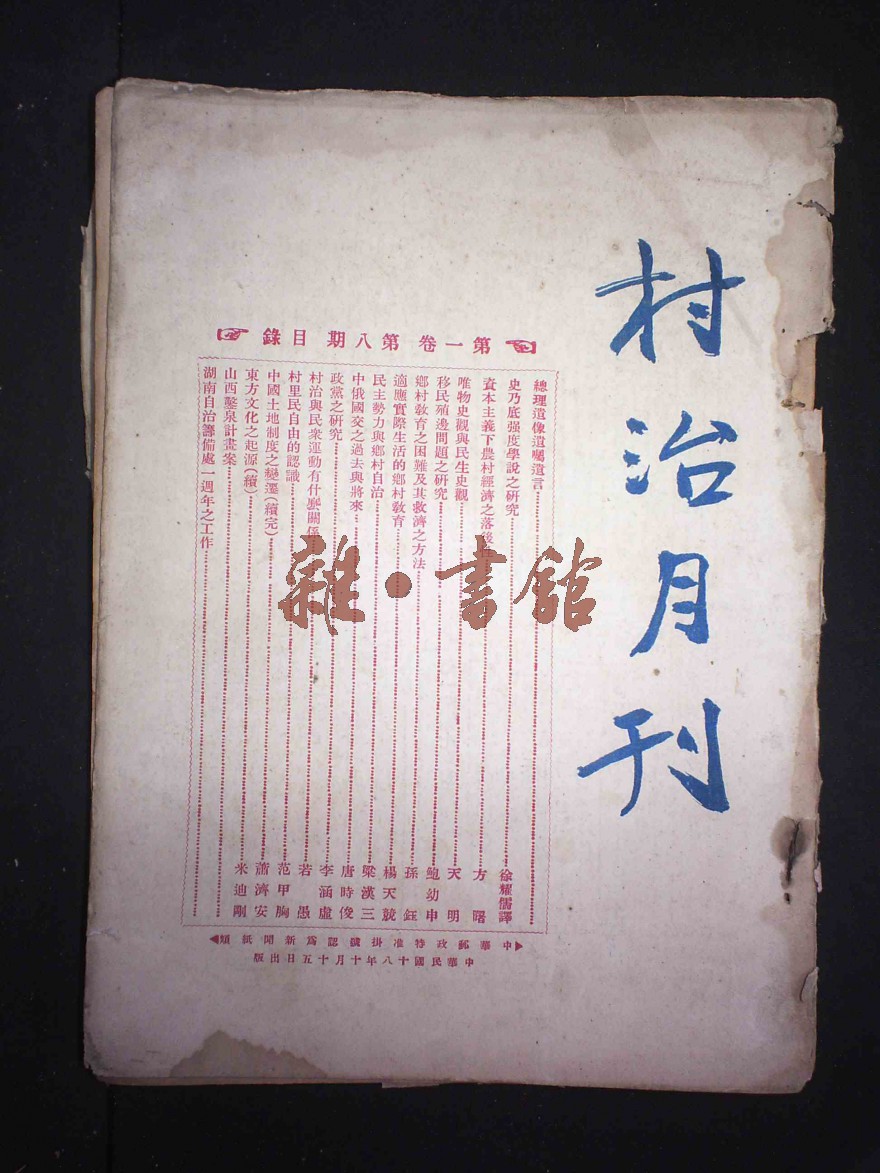 村治月刊
第一卷 第八期 目錄
總理遺像遺囑遺言
史乃底强度學說之研究 徐耀儒譯
資本主義下農村經濟之落後 方曙
唯物史觀與民生史觀 天明
移民殖邊問題之研究 鮑幼申
鄉村教育之困難及其救濟之方法 孫鈺
適應實際生活的鄉村教育 楊天競
民主勢力與鄉村自治 梁漢三
中俄國交之過去與將來 唐時俊
政黨之研究 李涵虛
村治與民衆運動有什麽關係 若愚
村里民自由的認識 范甲胸
中國土地制度之變遷(續完) 蕭濟安
東方文化之起源(續) 米迪剛
山西鑿泉計畫案
湖南自治籌備處一週年之工作
中華郵政特准掛號認爲新聞紙類
中華民國十八年十月十五日出版
雜·書館